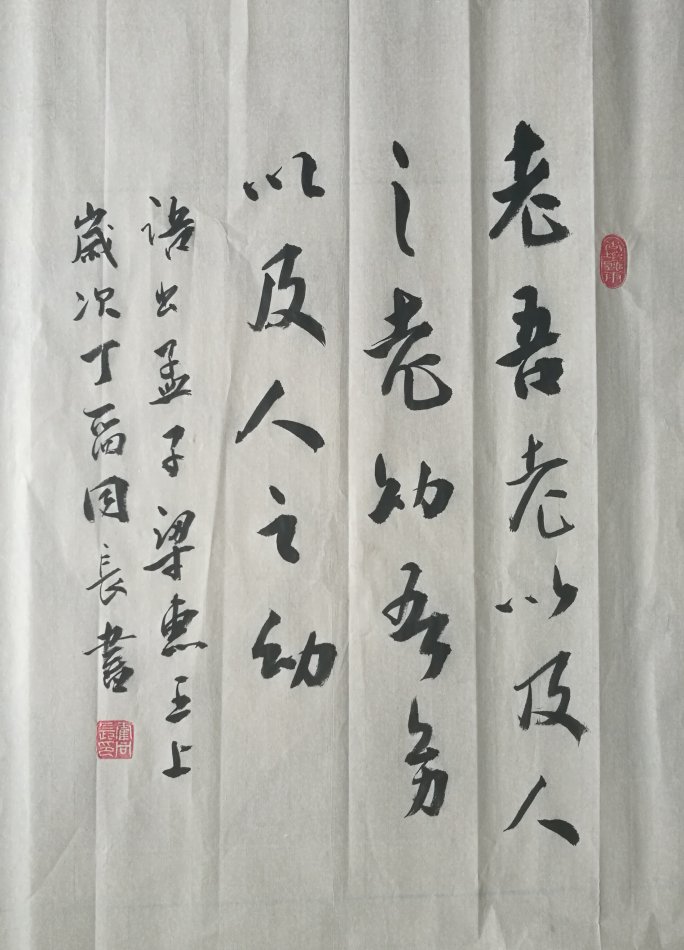 老吾老以及人
之老幼吾幼
以及人之幼
语出孟子梁惠王上
歲次丁酉同長書